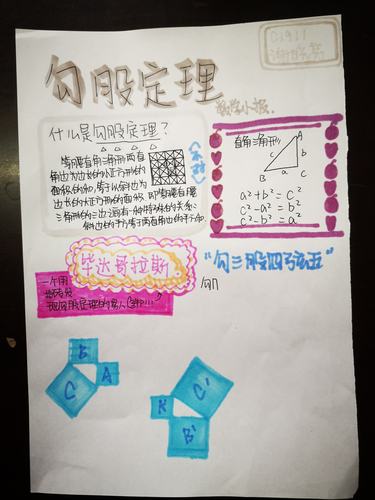 勾股定理
数学小报.
C1911
谢梓萼
什么是勾股定理?
等腰直角三角形两直
角边为边长的小正方形的
面积的和,等于以斜边为
边长的大正方形的面积.即等腰直角
三角形的三边之间有一种特殊的关系:
斜边长的平方等于两直角边的平方和.
直角三角形
A
c
b
B
a
C
a²+b²=c²
c²-a²=b²
c²-b²=a²
毕达哥拉斯
"勾三股四弦五"
一个用
B
C
A
C'
K
B'